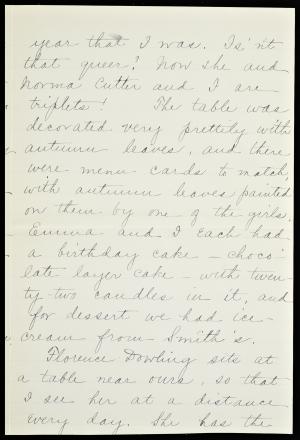 year that I was. Is'nt
that queer? Now she and
Norma Cutter and I are
triplets! The table was
decorated very prettily with
autumn leaves, and there
were menu cards to match,
with autumn leaves painted
on them by one of the girls.
Emma and I each had
a birthday cake - choco-
late layer cake - with twen-
ty-two candles in it, and
for dessert we had ice-
cream from Smith's.
Florence Dowling sits at
a table near ours, so that
I see her at a distance
every day. She has the